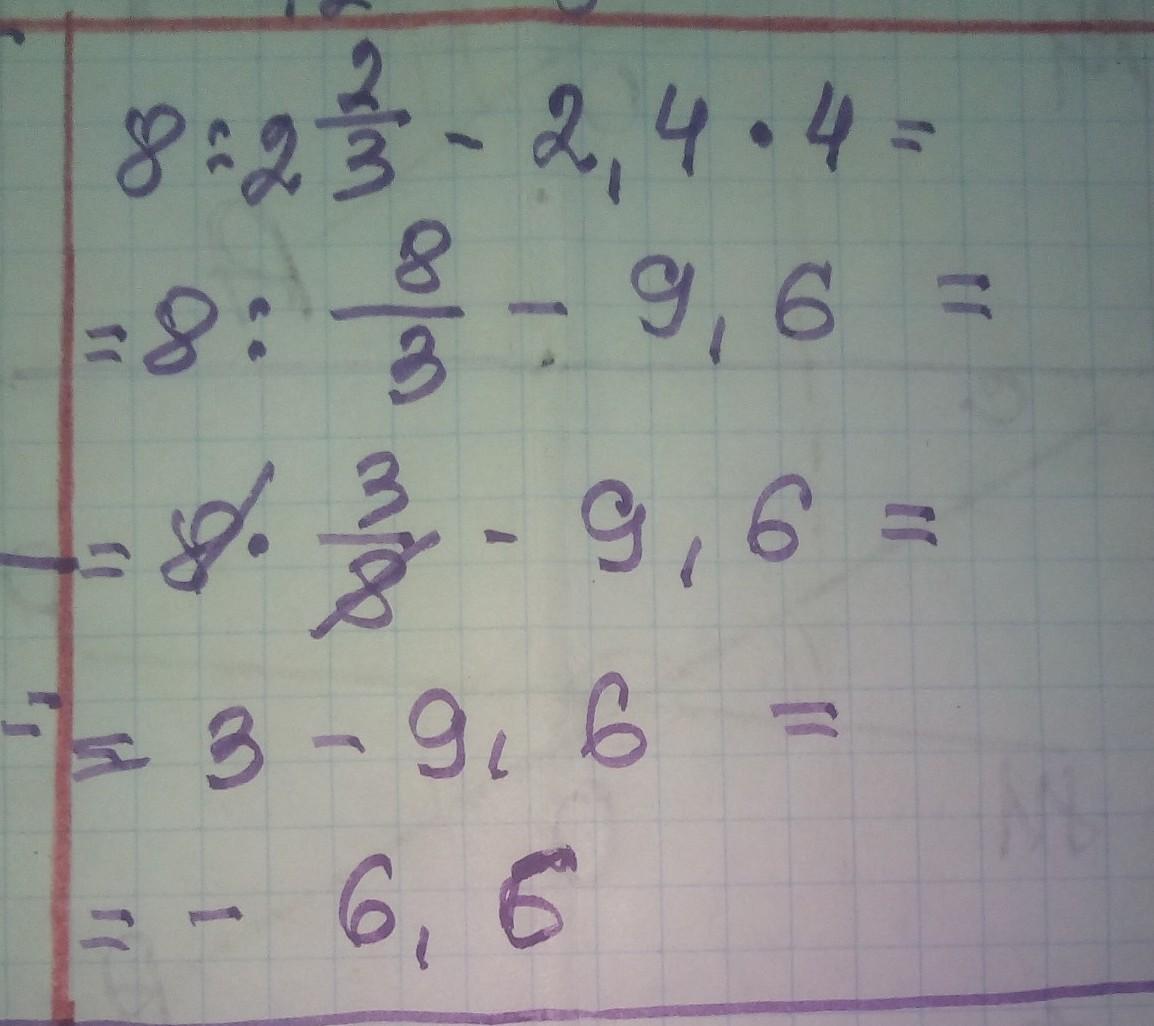 8 : 2 2/3 - 2,4 · 4 =
= 8 : 8/3 - 9,6 =
= 8 · 3/8 - 9,6 =
= 3 - 9,6 =
= - 6,6